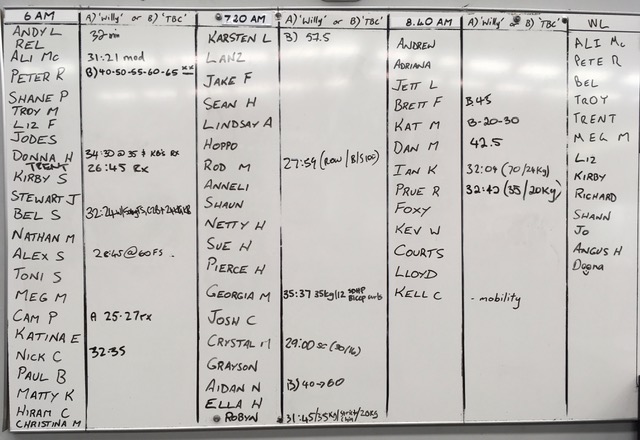 6 AM A) 'Willy' or B) 'TBC' 7 20 AM A) 'Willy' or B) 'TBC' 8.40 AM A) 'Willy' or B) 'TBC' WL
ANDY L
REL
ALI Mc 31:21 mod
PETER R B) 40-50-55-60-65 xx
SHANE P
TROY M
LIZ F
JODES
DONNA H 34:30 @ 35 & KB's Rx
TRENT 26:45 Rx
KIRBY S
STEWART J
BEL S 32:24
NATHAN M
ALEX S 28:45 @ 60 FS
TONI S
MEG M
CAM P A 25-27 rx
KATINA E
NICK C 32:35
PAUL B
MATTY K
HIRAM C
CHRISTINA M
KARSTEN L B) 57.5
LANZ
JAKE F
SEAN H
LINDSAY A
HOPPO
ROD M 27:59 (ROW / B/S 100)
ANNELI
SHAUN
NETTY H
SUE H
PIERCE H
GEORGIA M 35:37 35kg/12 SDHP Bicep curls
JOSH C
CRYSTAL M 29:00 sc (30/16)
GRAYSON
AIDAN N B) 40→60
ELLA H
ROBYN 31:45/35kg/ 20kg
ANDREW
ADRIANA
JETT L
BRETT F B 45
KAT M B-20-30
DAN M 42.5
IAN K 32:04 (70/24kg)
PRUE R 32:42 (35/20kg)
FOXY
KEV W
COURTS
LLOYD
KELL C - mobility
ALI Mc
PETE R
BEL
TROY
TRENT
MEG M
LIZ
KIRBY
RICHARD
SHANN
JO
ANGUS H
Donna